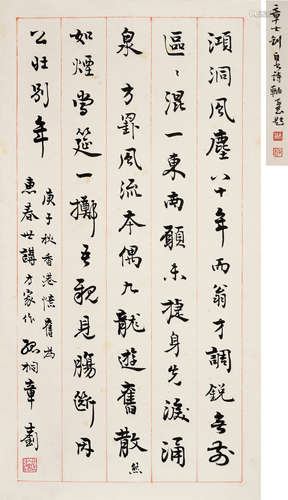 澒洞風塵八十年而翁才調銳無前
區區混一東西願未捷身先淚湧
泉方罫風流本偶九龍遊舊散然
如煙當筵一擲吾親見腸斷因
公旺別年
庚子秋香港懷舊為
惠春世講方家作 孤桐章士釗
章士釗自書詩軸